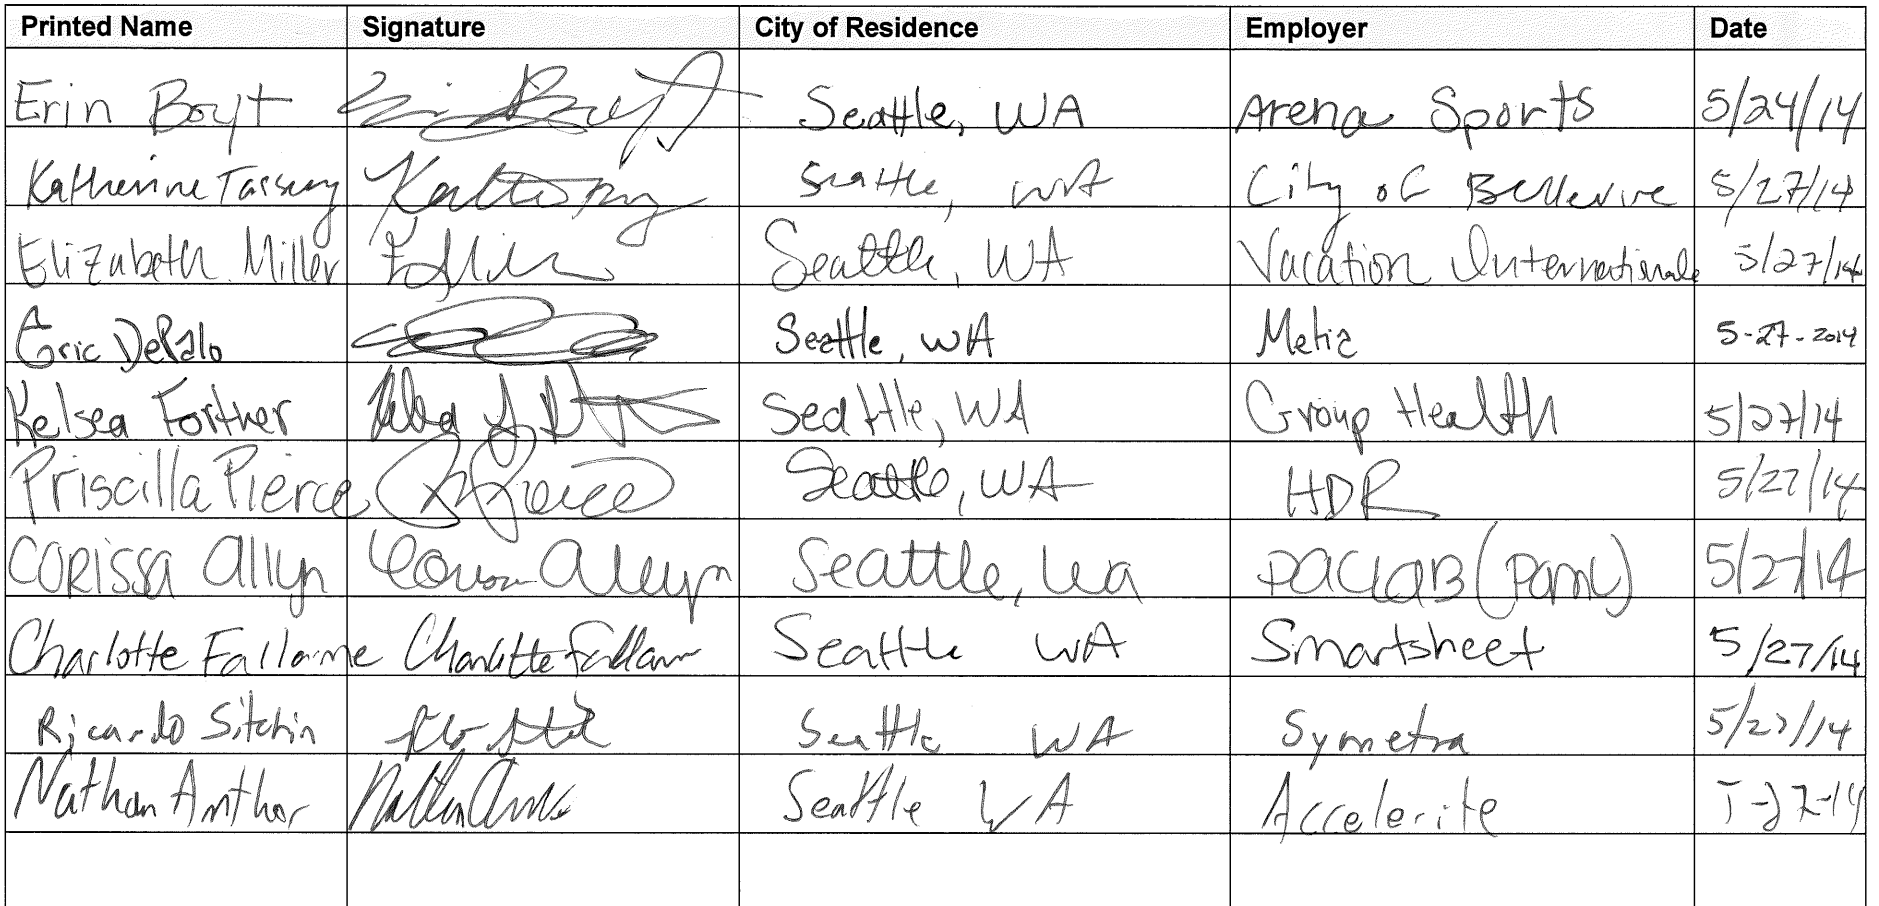 Printed Name Signature City of Residence Employer Date
Erin Boyt Erin Boyt Seattle, WA Arena Sports 5/24/14
Katherine Tassery Seattle, WA City of Bellevue 5/27/14
Elizabeth Miller Seattle, WA Vacation Internationale 5/27/14
Eric DePalo Seattle, WA Metia 5-27-2014
Kelsea Fortner Seattle, WA Group Health 5/27/14
Priscilla Pierce Seattle, WA HDR 5/27/14
CORISSA Allyn Allyn Seattle, Wa PACLAB (PAML) 5/27/14
Charlotte Fallorme Charlotte Seattle WA Smartsheet 5/27/14
Ricardo Sitchin Seattle WA Symetra 5/27/14
Nathan Amthor Nathan Seattle WA Accelerite 5-27-14